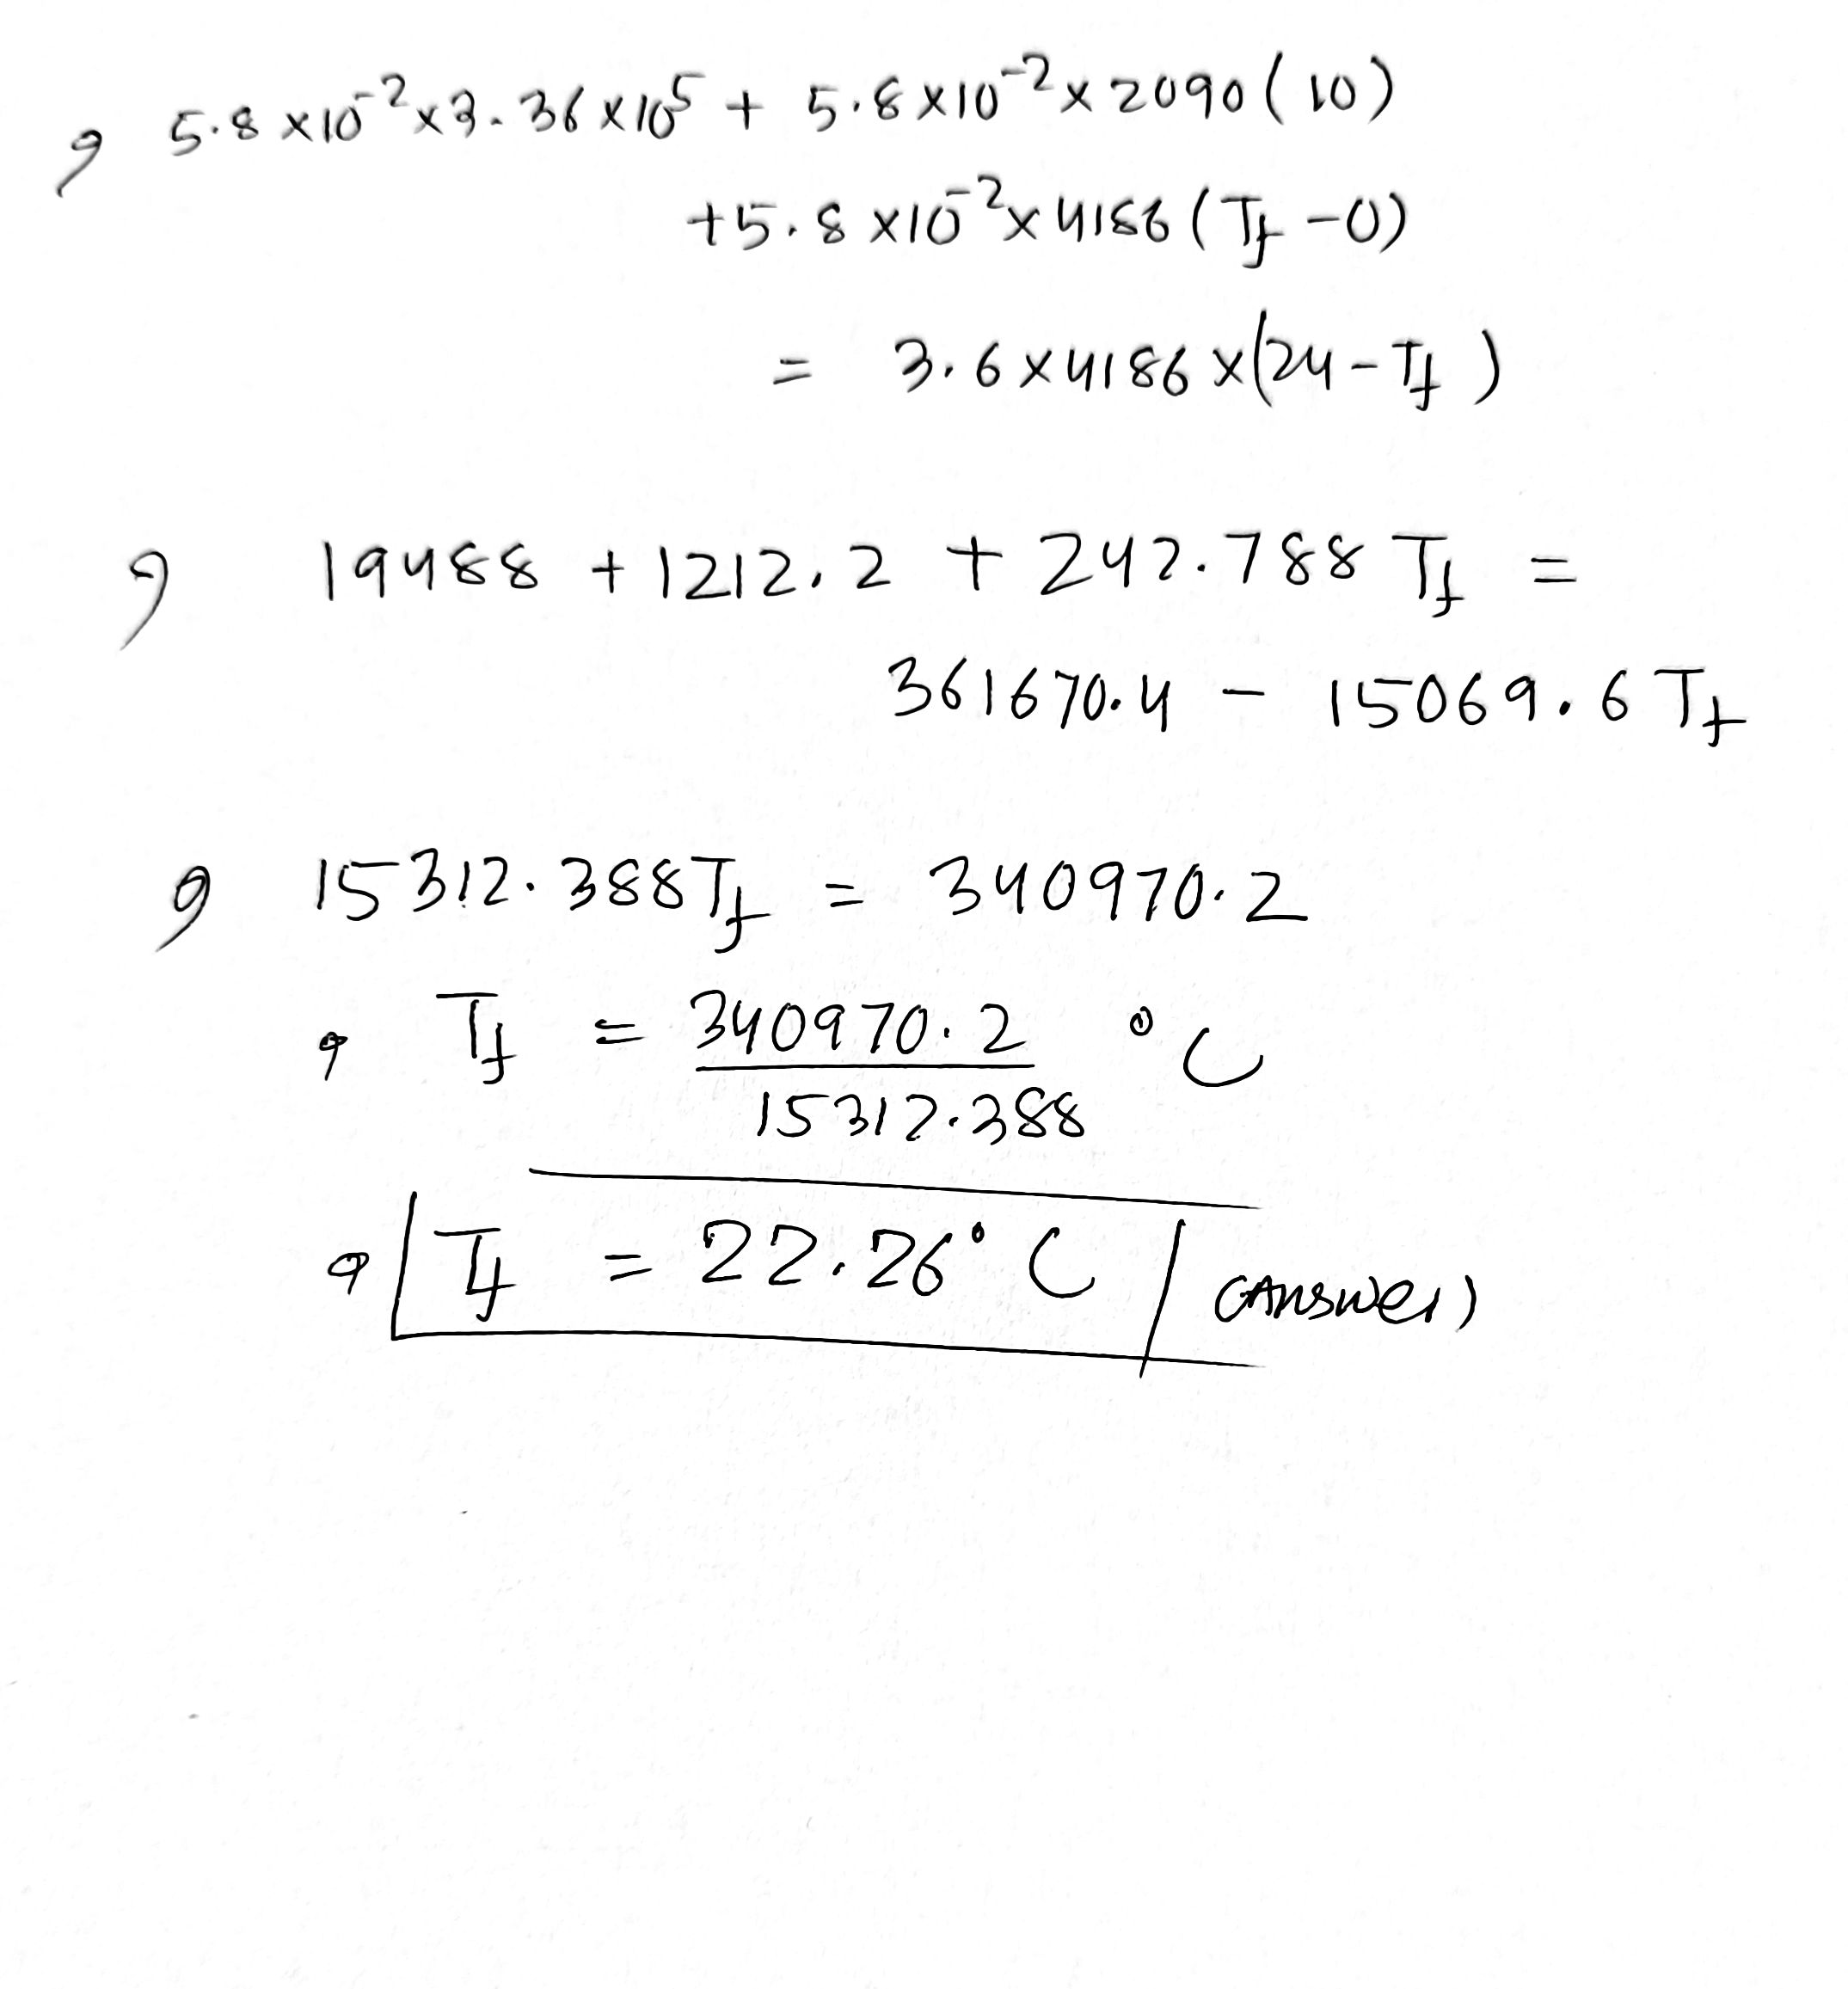 ⇒ 5.8 ×10⁻²×3.36×10⁵ + 5.8×10⁻²×2090(10)
+5.8×10⁻²×4186(T_f -0)
= 3.6×4186×(24-T_f)
⇒ 19488 +1212.2 + 242.788 T_f =
361670.4 - 15069.6 T_f
⇒ 15312.388T_f = 340970.2
⇒ T_f = 340970.2 °C
15312.388
⇒ T_f = 22.26° C (Answer)